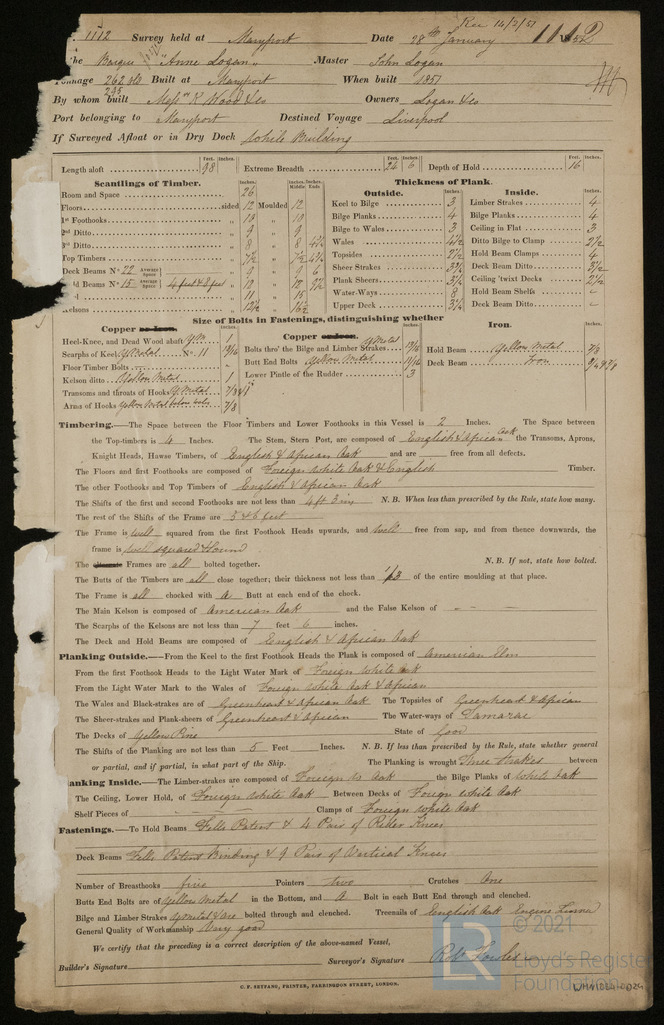 Rec 14/2/51
1112 Survey held at Maryport Date 28th January 1852
Barque "Anne Logan" Master John Logan
262 old Built at Maryport When built 1851
By whom built Messrs K Wood & Co Owners Logan & Co
Port belonging to Maryport Destined Voyage Liverpool
If Surveyed Afloat or in Dry Dock While Building
Length aloft 98 Feet. Inches. Extreme Breadth 24 6 Feet. Inches. Depth of Hold 16 Feet. Inches.
Scantlings of Timber.
Room and Space 26
Floors sided 12 Moulded 12
1st Foothooks 10 10
2nd Ditto 9 9
3rd Ditto 8 8
Top Timbers 7½ 7½
Deck Beams No 22 Average Space 9 9 6
Hold Beams No 15 Average Space 4 feet & 8 feet
Thickness of Plank.
Outside. Inches.
Keel to Bilge 3
Bilge Planks 4
Bilge to Wales 3
Wales 4½
Topsides 2½
Sheer Strakes
Plank Sheers
Water-Ways 8
Upper Deck
Inside. Inches.
Limber Strakes 4
Bilge Planks 4
Ceiling in Flat 3
Ditto Bilge to Clamp 2½
Hold Beam Clamps 4
Deck Beam Ditto
Ceiling 'twixt Decks 2½
Hold Beam Shelfs
Deck Beam Ditto
Size of Bolts in Fastenings, distinguishing whether
Copper or Iron.
Heel-Knee, and Dead Wood abaft Y.M. 1
Scarphs of Keel Y Metal No. 11
Floor Timber Bolts
Kelson ditto Yellow Metal 1
Transoms and throats of Hooks Y Metal
Arms of Hooks Yellow Metal below 7/8
Copper or Iron.
Bolts thro' the Bilge and Limber Strakes Y Metal
Butt End Bolts Yellow Metal
Lower Pintle of the Rudder 3
Iron.
Hold Beam Yellow Metal 7/8
Deck Beam Iron
Timbering.—The Space between the Floor Timbers and Lower Foothooks in this Vessel is 2 Inches. The Space between
the Top-timbers is 4 Inches. The Stem, Stern Post, are composed of English & African Oak the Transoms, Aprons,
Knight Heads, Hawse Timbers, of English & African Oak and are free from all defects.
The Floors and first Foothooks are composed of Foreign White Oak & English Timber.
The other Foothooks and Top Timbers of English & African Oak
The Shifts of the first and second Foothooks are not less than 4 ft 3 in N.B. When less than prescribed by the Rule, state how many.
The rest of the Shifts of the Frame are 5 & 6 feet
The Frame is well squared from the first Foothook Heads upwards, and well free from sap, and from thence downwards, the
frame is well squared & sound
The Alternate Frames are all bolted together. N.B. If not, state how bolted.
The Butts of the Timbers are all close together; their thickness not less than 1/3 of the entire moulding at that place.
The Frame is all chocked with a Butt at each end of the chock.
The Main Kelson is composed of American Oak and the False Kelson of
The Scarphs of the Kelsons are not less than 7 feet 6 inches.
The Deck and Hold Beams are composed of English & African Oak
Planking Outside.—From the Keel to the first Foothook Heads the Plank is composed of American Elm
From the first Foothook Heads to the Light Water Mark of Foreign White Oak
From the Light Water Mark to the Wales of Foreign White Oak & African
The Wales and Black-strakes are of Greenheart & African Oak The Topsides of Greenheart & African
The Sheer-strakes and Plank-sheers of Greenheart & African The Water-ways of Tamarac
The Decks of Yellow Pine State of Good
The Shifts of the Planking are not less than 5 Feet Inches. N.B. If less than prescribed by the Rule, state whether general
or partial, and if partial, in what part of the Ship. The Planking is wrought Three Strakes between
Planking Inside.—The Limber-strakes are composed of Foreign W Oak the Bilge Planks of White Oak
The Ceiling, Lower Hold, of Foreign White Oak Between Decks of Foreign White Oak
Shelf Pieces of Clamps of Foreign White Oak
Fastenings.—To Hold Beams Fells Patent & 4 Pair of Rider Knees
Deck Beams Fells Patent Binding & 9 Pair of Vertical Knees
Number of Breasthooks five Pointers two Crutches One
Butts End Bolts are of Yellow Metal in the Bottom, and A Bolt in each Butt End through and clenched.
Bilge and Limber Strakes Y Metal & are bolted through and clenched. Treenails of English Oak Engine Turned
General Quality of Workmanship Very good
We certify that the preceding is a correct description of the above-named Vessel,
Builder's Signature Surveyor's Signature
C. F. SEYFANG, PRINTER, FARRINGDON STREET, LONDON.
LR
© 2021
Lloyd's Register
Foundation